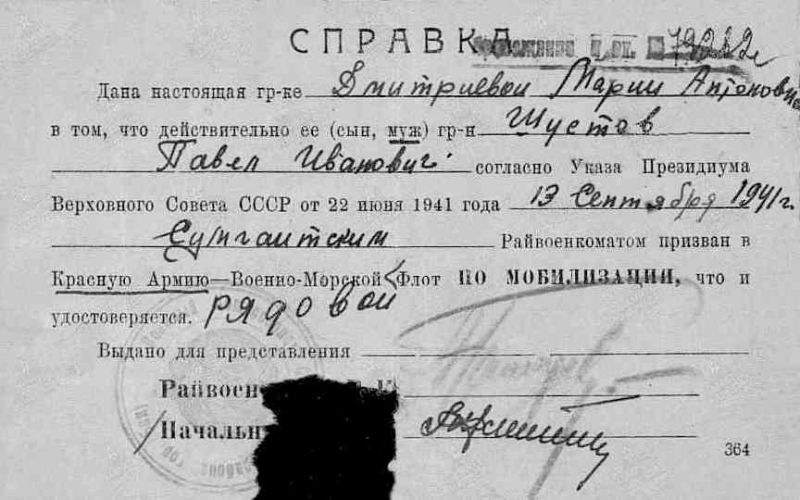 СПРАВКА
Дана настоящая гр-ке Дмитриевой Марии Антоновне
в том, что действительно ее (сын, муж) гр-н Шустов
Павел Иванович согласно Указа Президиума
Верховного Совета СССР от 22 июня 1941 года 13 Сентября 1941 г.
Сумгаитским Райвоенкоматом призван в
Красную Армию—Военно-Морской Флот ПО МОБИЛИЗАЦИИ, что и
удостоверяется. рядовой
Выдано для представления
Райвоен
Начальн
364